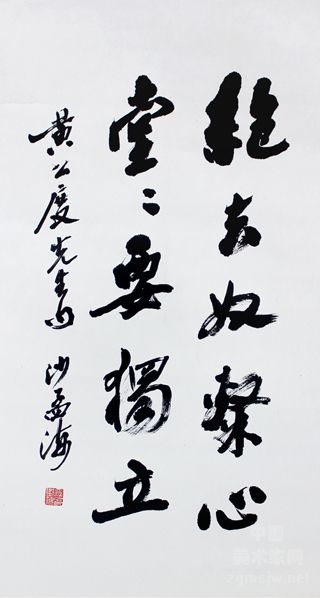 絶去奴隸心
堂〻要獨立
黄公度先生句 沙孟海
中国
美术家网
zgmsjw.net